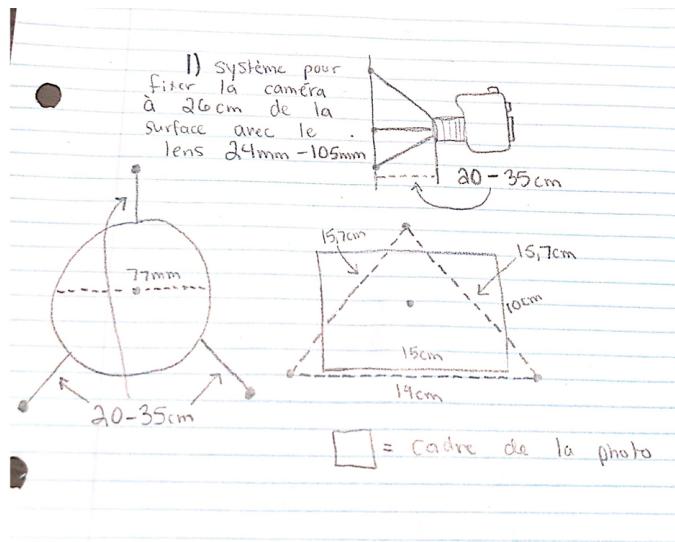 1) système pour
fixer la caméra
à 26cm de la
surface avec le .
lens 24mm-105mm
20-35cm
77mm
20-35cm
15,7cm
15,7cm
10cm
15cm
19cm
= cadre de la photo